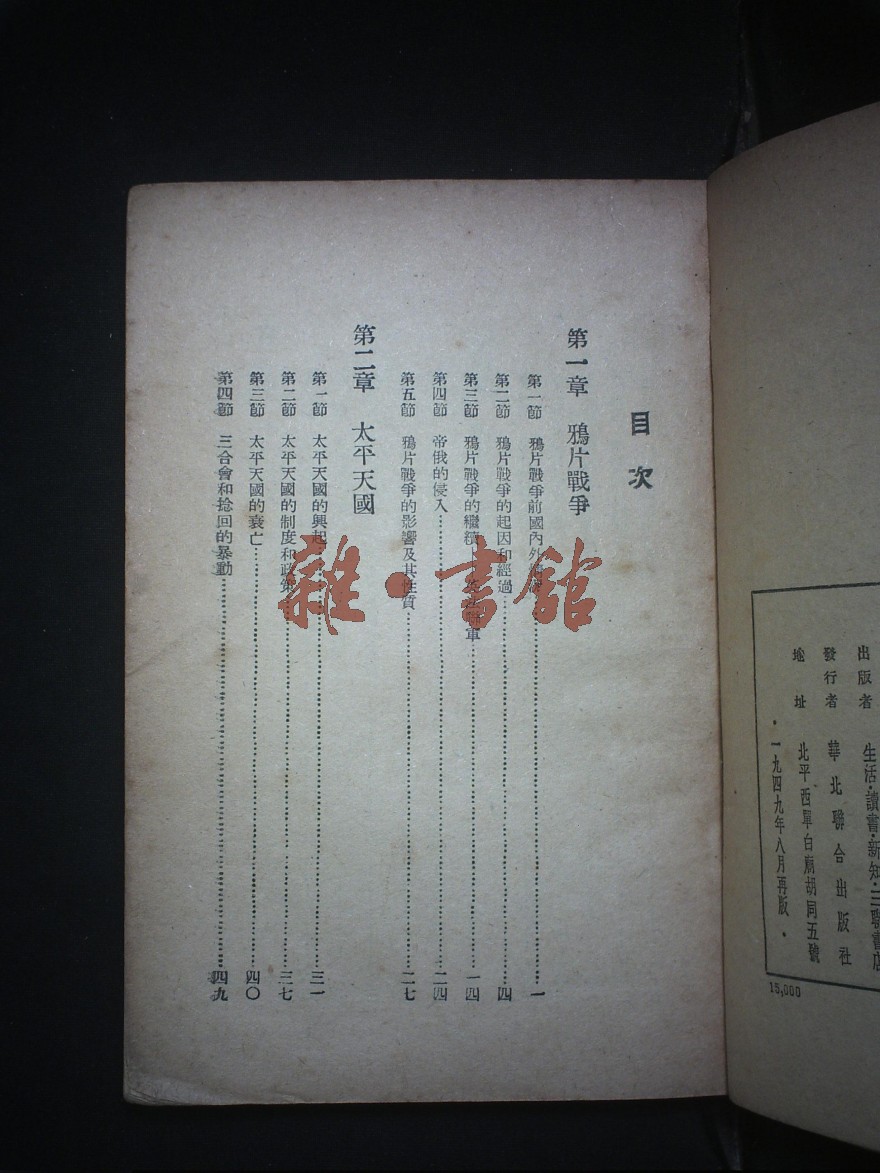 出版者 生活·讀書·新知·三聯書店
發行者 華北聯合出版社
地址 北平西單白廟胡同五號
·一九四九年八月再版·
15,000
目次
第一章 鴉片戰爭
第一節 鴉片戰爭前國內外 一
第二節 鴉片戰爭的起因和經過 四
第三節 鴉片戰爭的繼續 軍 一四
第四節 帝俄的侵入 二四
第五節 鴉片戰爭的影響及其性質 二七
第二章 太平天國
第一節 太平天國的興起 三一
第二節 太平天國的制度和政策 三七
第三節 太平天國的衰亡 四〇
第四節 三合會和捻回的暴動 四九
雜·書館